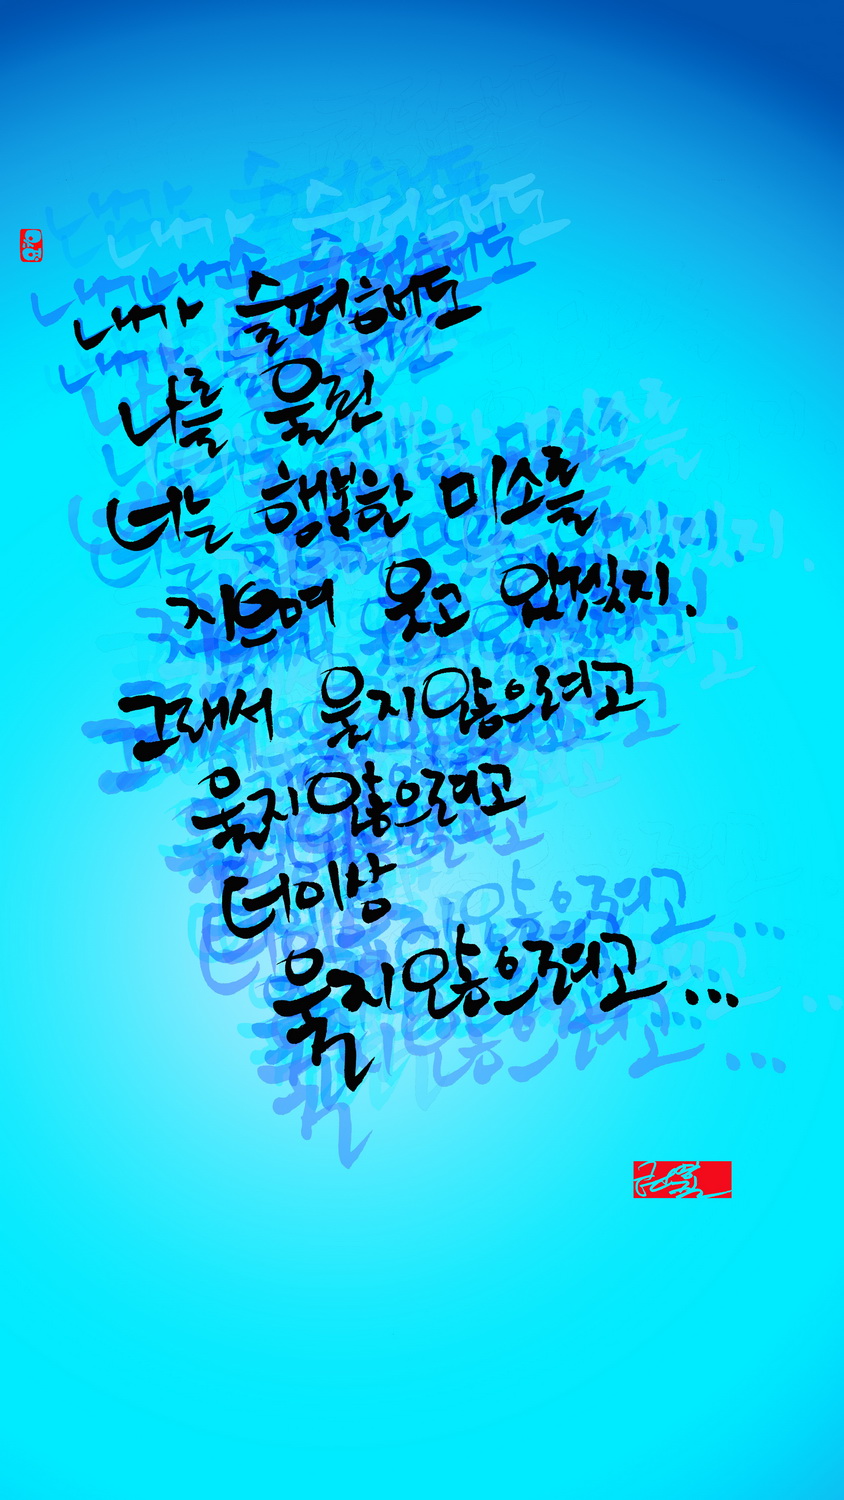 내가 슬퍼해도
나를 울린
너는 행복한 미소를
지으며 웃고 있겠지.
그래서 울지않으려고
울지않으려고
더이상
울지않으려고...